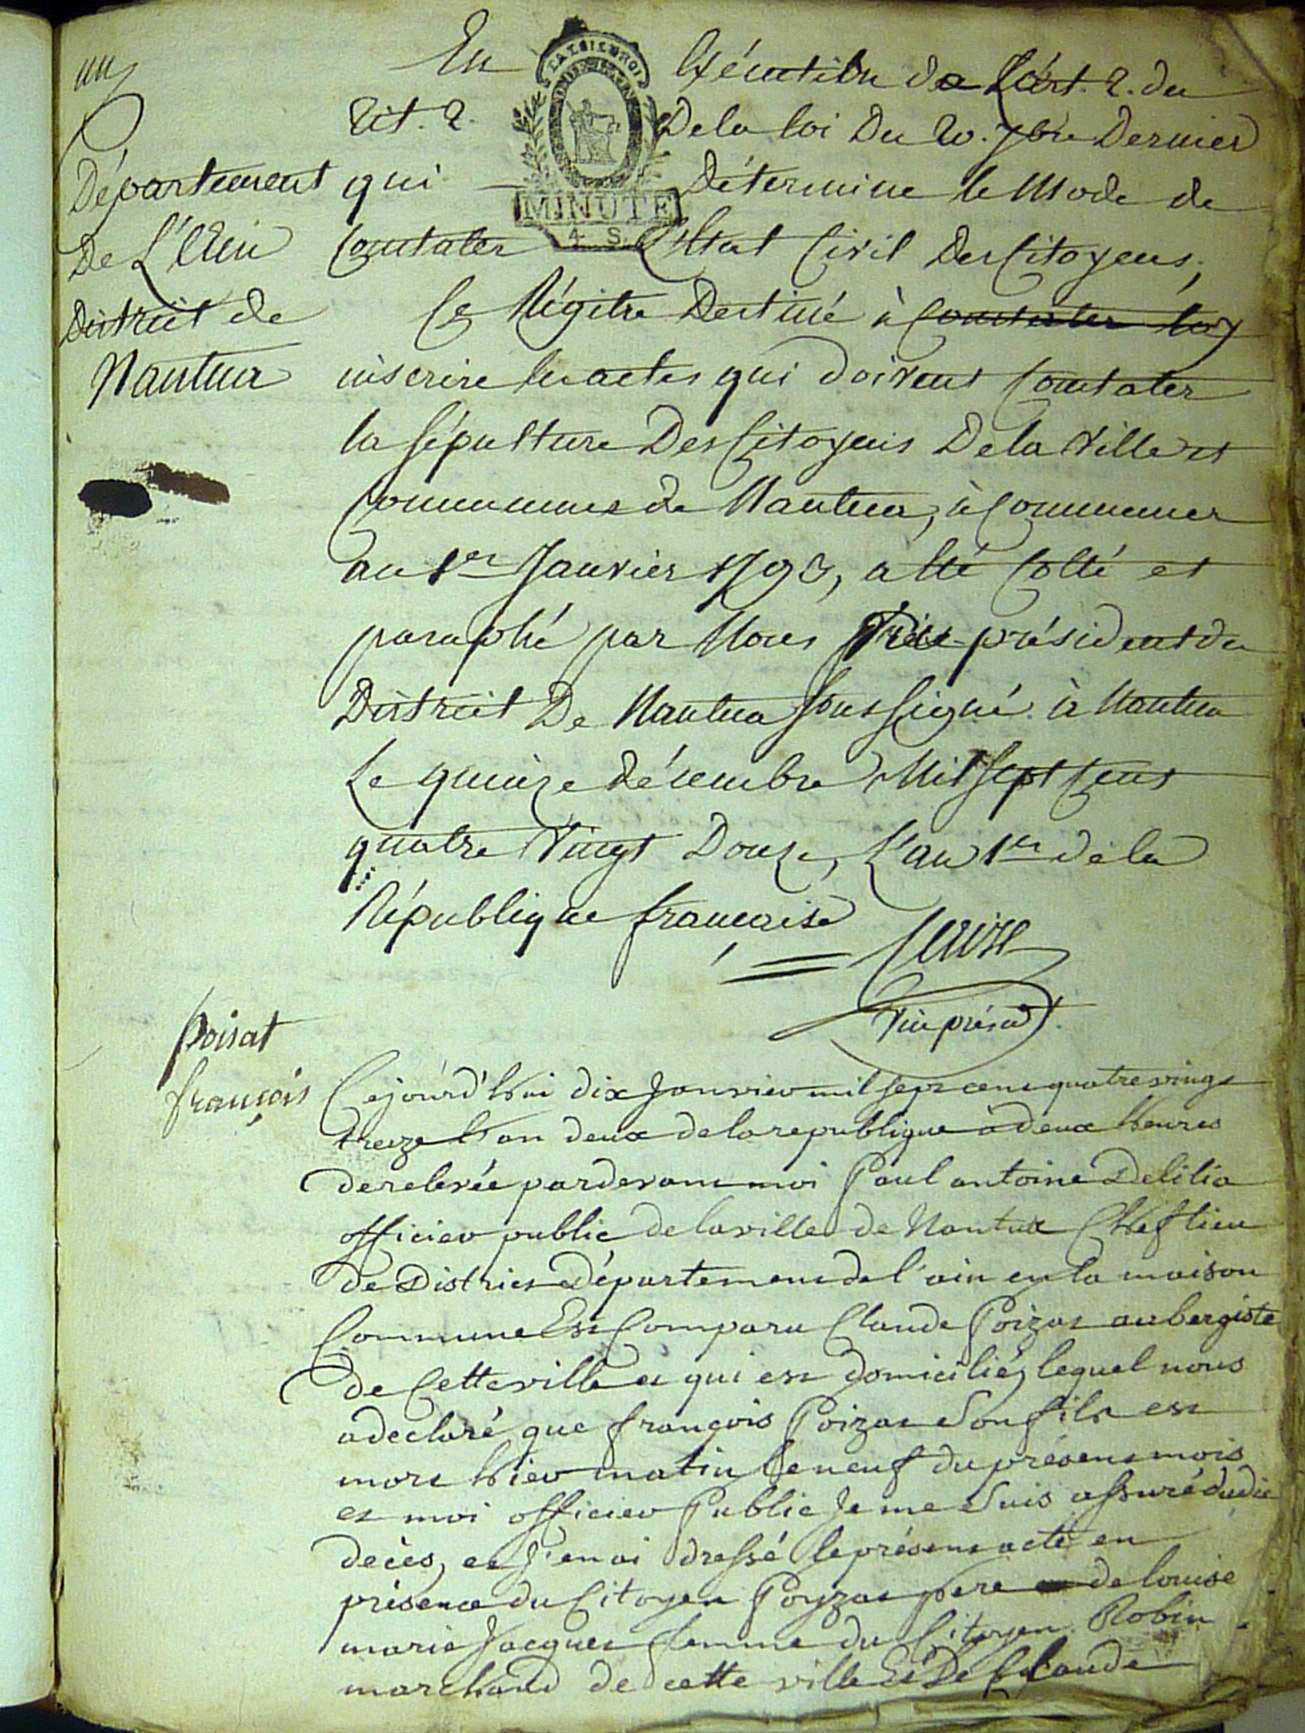 Département
De L'Ain
District de
Nantua
En Exécution de L'art. 2. du
tit. 2. De la loi Du 20. 7bre Dernier
qui Détermine le Mode de
Constater L'Etat Civil Des Citoyens,
LA LOI LE ROI
MINUTE
4. S.
Ce Régitre Destiné à Constater
inscrire les actes qui doivent Constater
la sépulture Des Citoyens De la Ville et
Communes de Nantua, à Commencer
au 1er Janvier 1793, a été Cotté et
paraphé par Nous président du
District De Nantua soussigné à Nantua
Le quinze décembre Mil sept Cent
quatre Vingt Douze, L'an 1er de la
République française
Vice présidt.
poisat
françois
Cejourd'hui dix janvier mil sept cent quatre vingt
treize l'an deux de la republique à deux heures
de relevée pardevant moi Paul antoine Delilia
officier public de la ville de Nantua Chef lieu
de District Département de l'ain en la maison
Commune Est Comparu Claude Poizat aubergiste
de Cette ville et qui est domicilié, lequel nous
a declaré que françois Poizat Son fils est
mort hier matin le neuf du présent mois
et moi officier Public Je me Suis assuré dudit
deces, et J'en ai dressé le présent acte en
présence du Citoyen Poyzat pere de louise
marie Jacquet femme du Citoyen Robin
marchand de cette ville Et De Claude